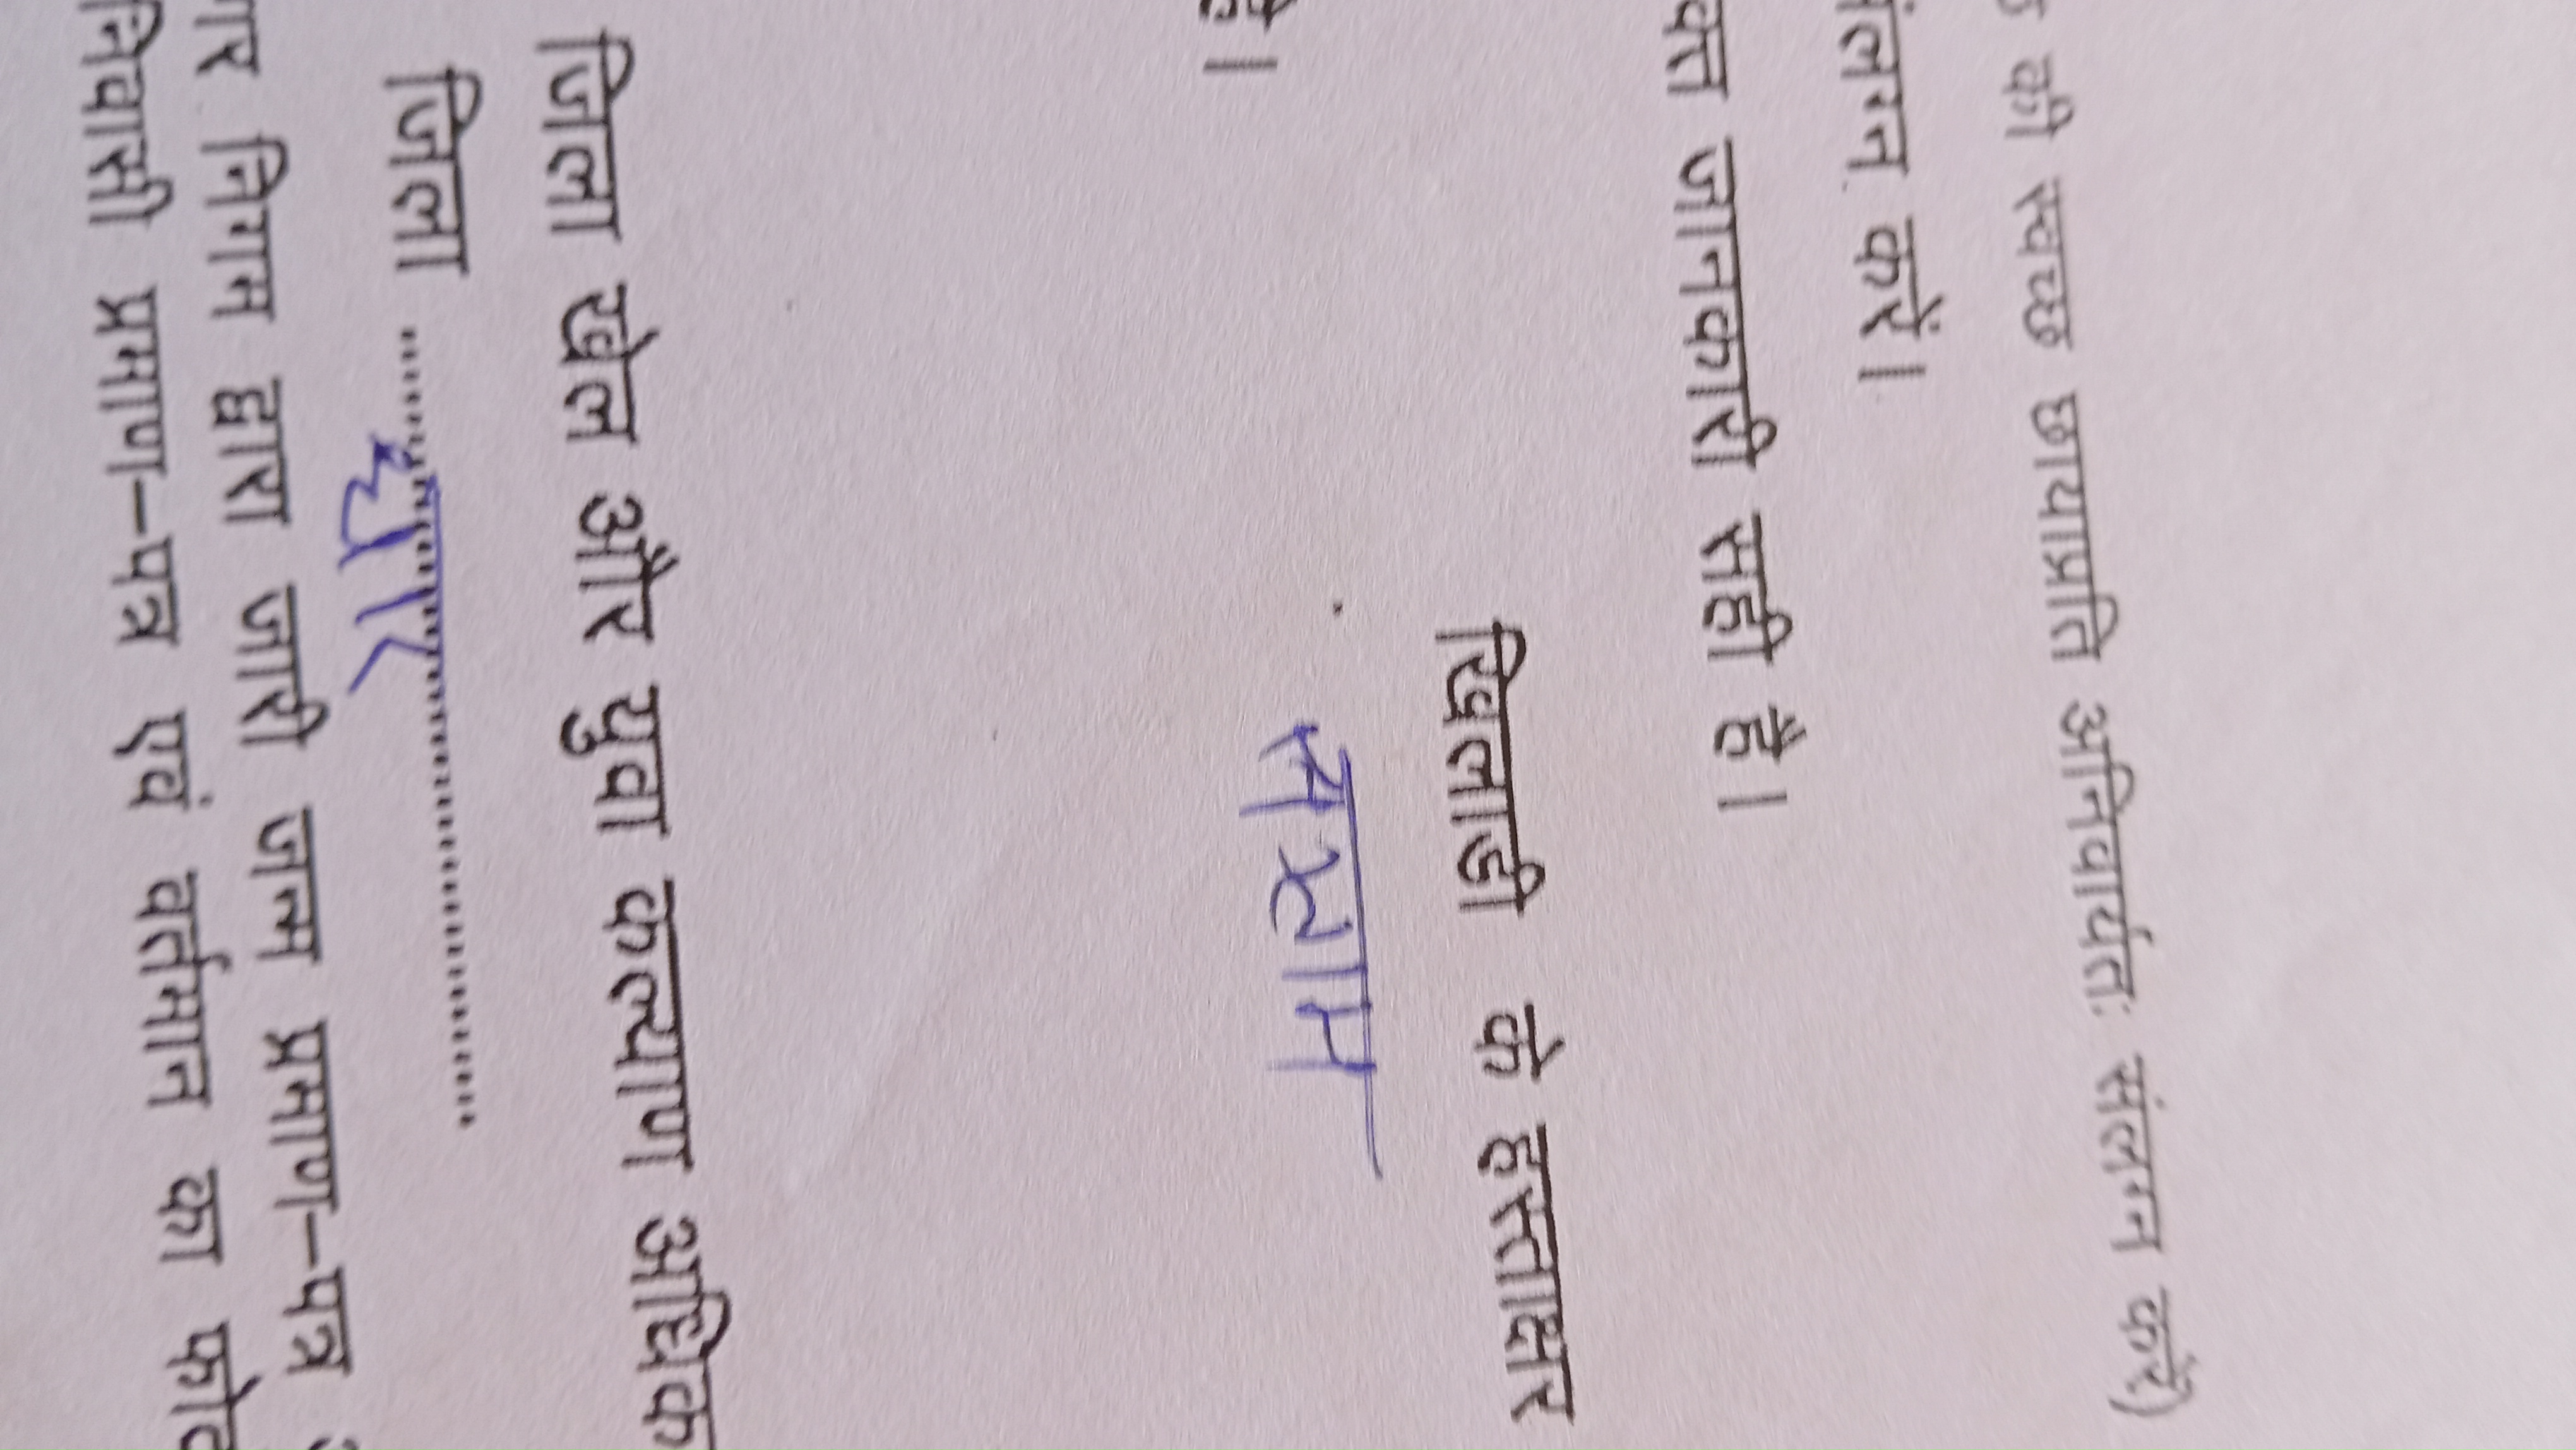 की स्वच्छ छायाप्रति अनिवार्यतः संलग्न करें)
संलग्न करें।
जानकारी सही है।
खिलाड़ी के हस्ताक्षर
है।
जिला खेल और युवा कल्याण
जिला .......धार..............
निगम द्वारा जारी जन्म प्रमाण–पत्र
निवासी प्रमाण–पत्र एवं वर्तमान का